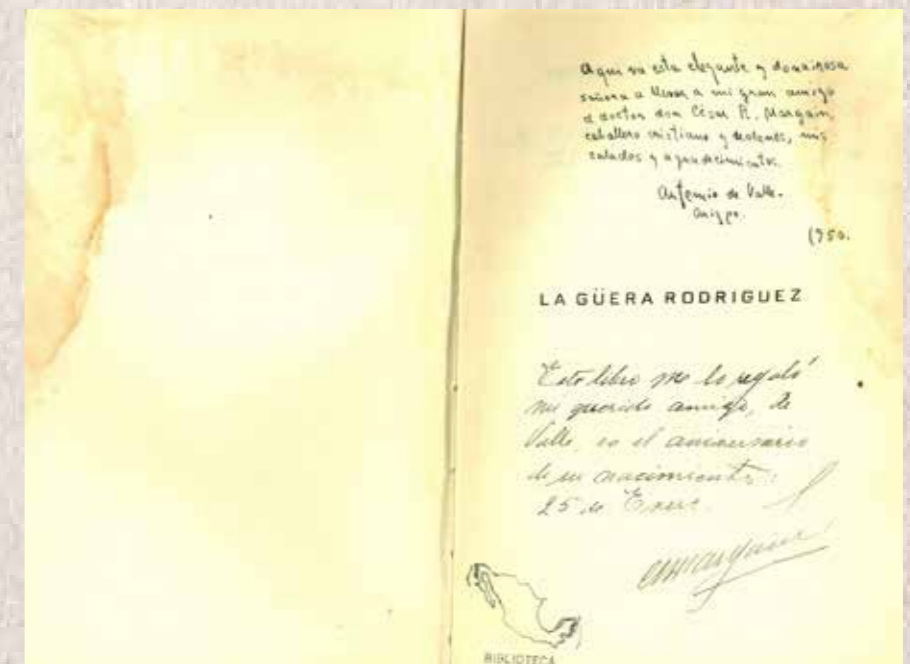 Aqui va esta elegante y donairosa
señora a llevar a mi gran amigo
el doctor don César R. Margain,
caballero cristiano y
saludos y agradecimientos.
Artemio de Valle-
Arizpe.
1950.
LA GÜERA RODRIGUEZ
Este libro me lo regaló
mi querido amigo, de
Valle, en el aniversario
de su nacimiento:
25 de Enero.
BIBLIOTECA